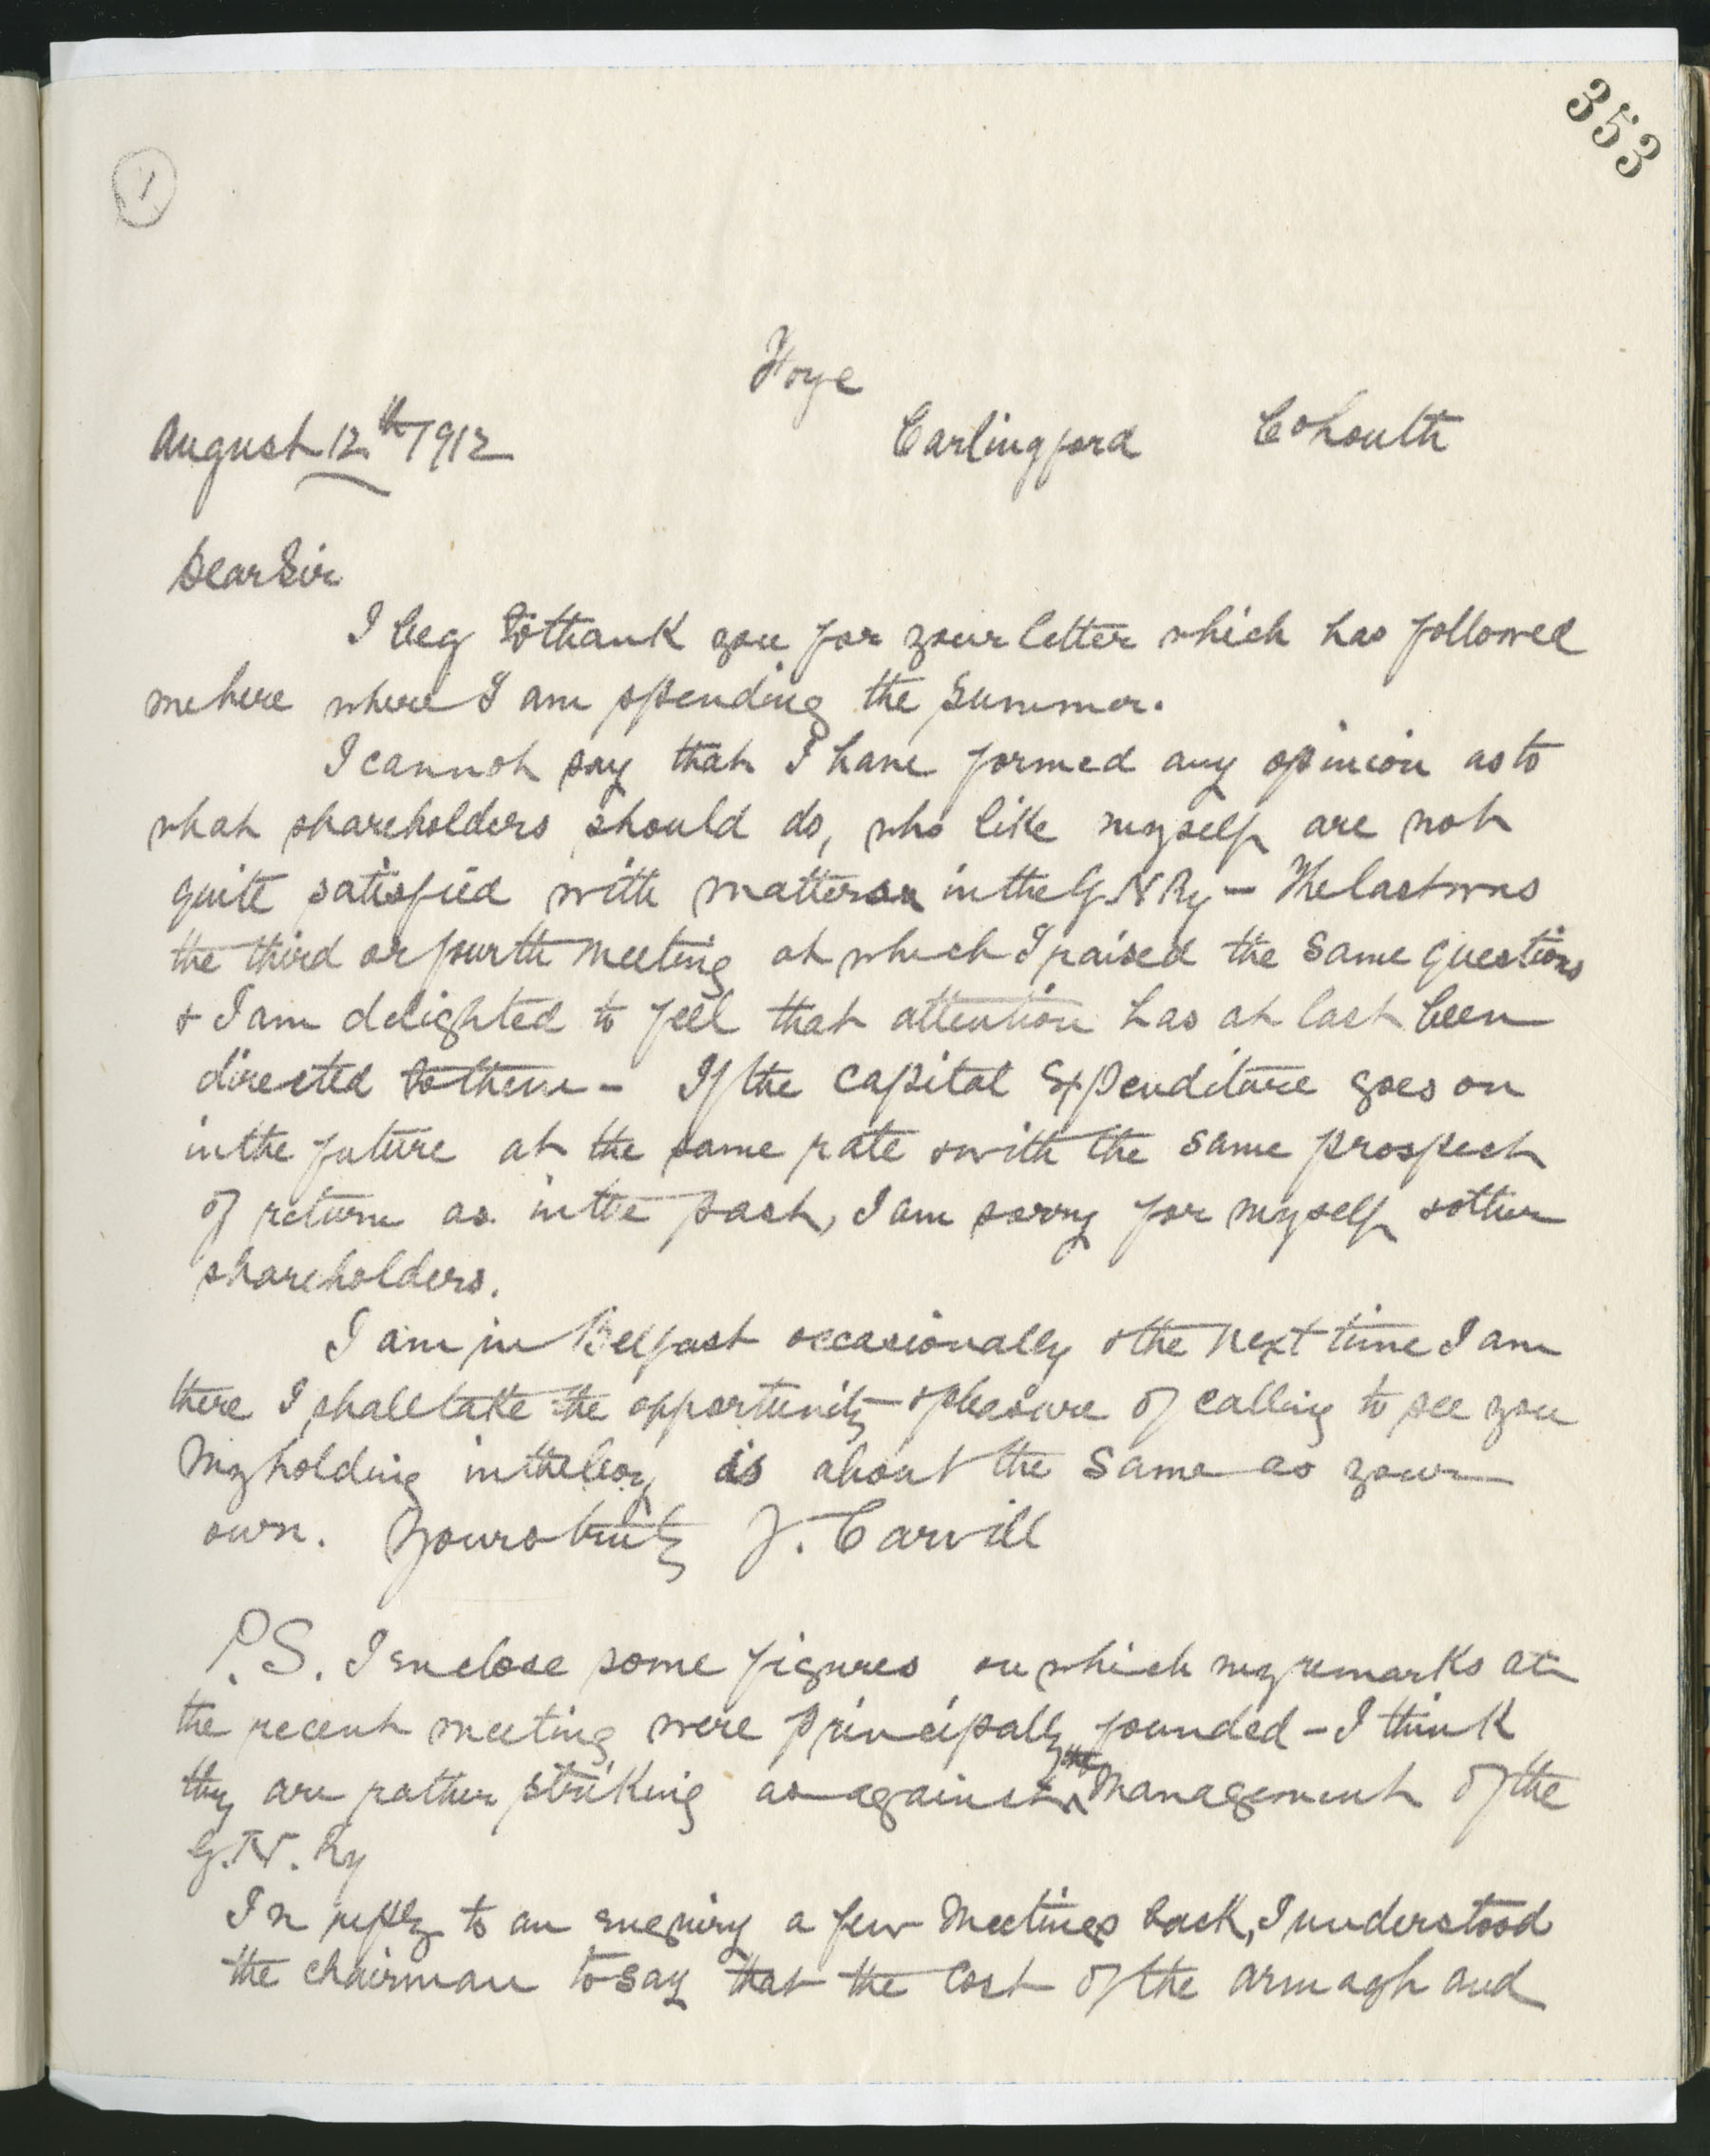 353
1
Foye
August 12th 1912 Carlingford Co Louth
Dear Sir
I beg to thank you for your letter which has followed
me here where I am spending the summer.
I cannot say that I have formed any opinion as to
what shareholders should do, who like myself are not
quite satisfied with matters in the G N Ry - The last was
the third or fourth meeting at which I raised the same questions
& I am delighted to feel that attention has at last been
directed to them - If the capital Expenditure goes on
in the future at the same rate & with the same prospect
of return as in the past, I am sorry for myself & other
shareholders.
I am in Belfast occasionally & the next time I am
there I shall take the opportunity & pleasure of calling to see you
My holding in the Coy is about the same as your
own. Yours truly J. Carvill
P.S. I enclose some figures on which my remarks at
the recent meeting were principally founded - I think
they are rather striking as against the Management of the
G.N. Ry
In reply to an enquiry a few Meetings back, I understood
the chairman to say that the cost of the Armagh and